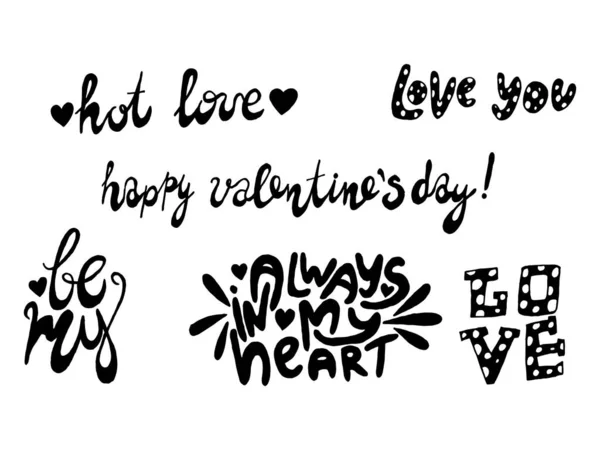 hot love
Love you
happy valentine's day!
be
my
ALWAYS
iN MY
HeART
LO
VE